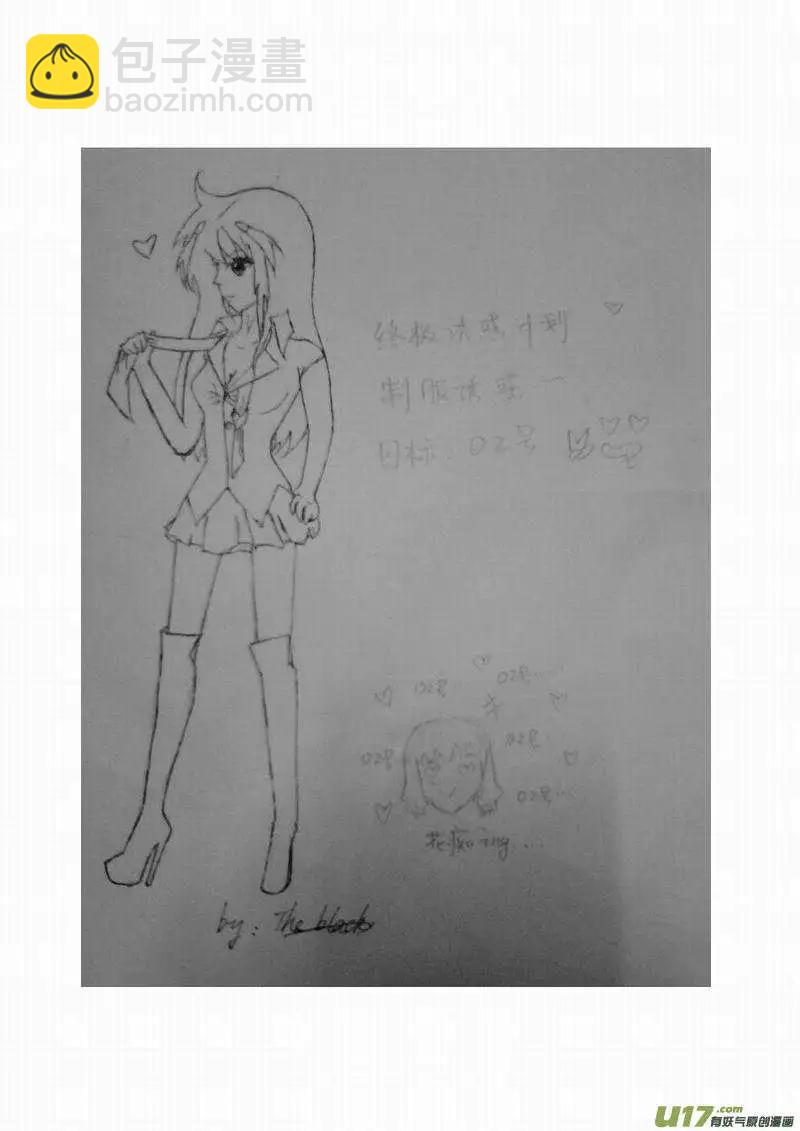 包子漫畫
baozimh.com
终极诱惑计划
制服诱惑一
目标：02号
02号…
02号……
02号
02号…
02号……
花痴ing...
by: The black
U17.com
有妖气原创漫画